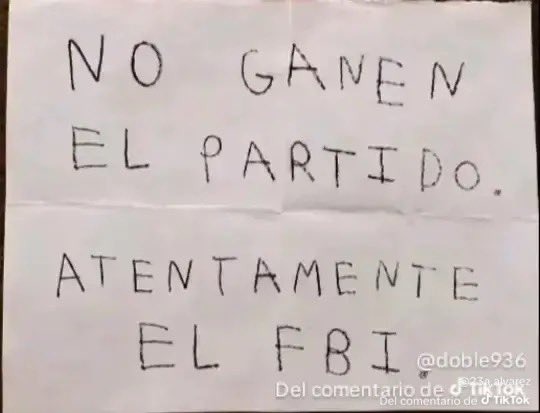 NO GANEN
EL PARTIDO.
ATENTAMENTE
EL FBI.
@doble936
@23a.alvarez
Del comentario de TikTok
Del comentario de TikTok